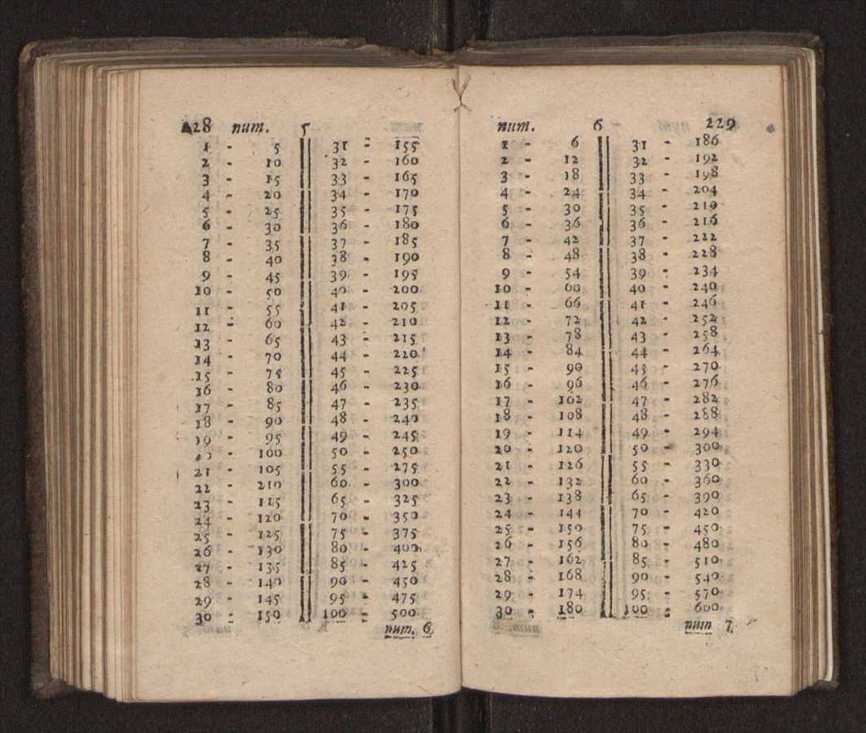 228 num. 5
1 - 5 31 - 155
2 - 10 32 - 160
3 - 15 33 - 165
4 - 20 34 - 170
5 - 25 35 - 175
6 - 30 36 - 180
7 - 35 37 - 185
8 - 40 38 - 190
9 - 45 39 - 195
10 - 50 40 - 200
11 - 55 41 - 205
12 - 60 42 - 210
13 - 65 43 - 215
14 - 70 44 - 220
15 - 75 45 - 225
16 - 80 46 - 230
17 - 85 47 - 235
18 - 90 48 - 240
19 - 95 49 - 245
20 - 100 50 - 250
21 - 105 55 - 275
22 - 210 60 - 300
23 - 115 65 - 325
24 - 120 70 - 350
25 - 125 75 - 375
26 - 130 80 - 400
27 - 135 85 - 425
28 - 140 90 - 450
29 - 145 95 - 475
30 - 150 100 - 500
num. 6.
num. 6 229
1 - 6 31 - 186
2 - 12 32 - 192
3 - 18 33 - 198
4 - 24 34 - 204
5 - 30 35 - 210
6 - 36 36 - 216
7 - 42 37 - 222
8 - 48 38 - 228
9 - 54 39 - 234
10 - 60 40 - 240
11 - 66 41 - 246
12 - 72 42 - 252
13 - 78 43 - 258
14 - 84 44 - 264
15 - 90 45 - 270
16 - 96 46 - 276
17 - 102 47 - 282
18 - 108 48 - 288
19 - 114 49 - 294
20 - 120 50 - 300
21 - 126 55 - 330
22 - 132 60 - 360
23 - 138 65 - 390
24 - 144 70 - 420
25 - 150 75 - 450
26 - 156 80 - 480
27 - 162 85 - 510
28 - 168 90 - 540
29 - 174 95 - 570
30 - 180 100 - 600
num 7.